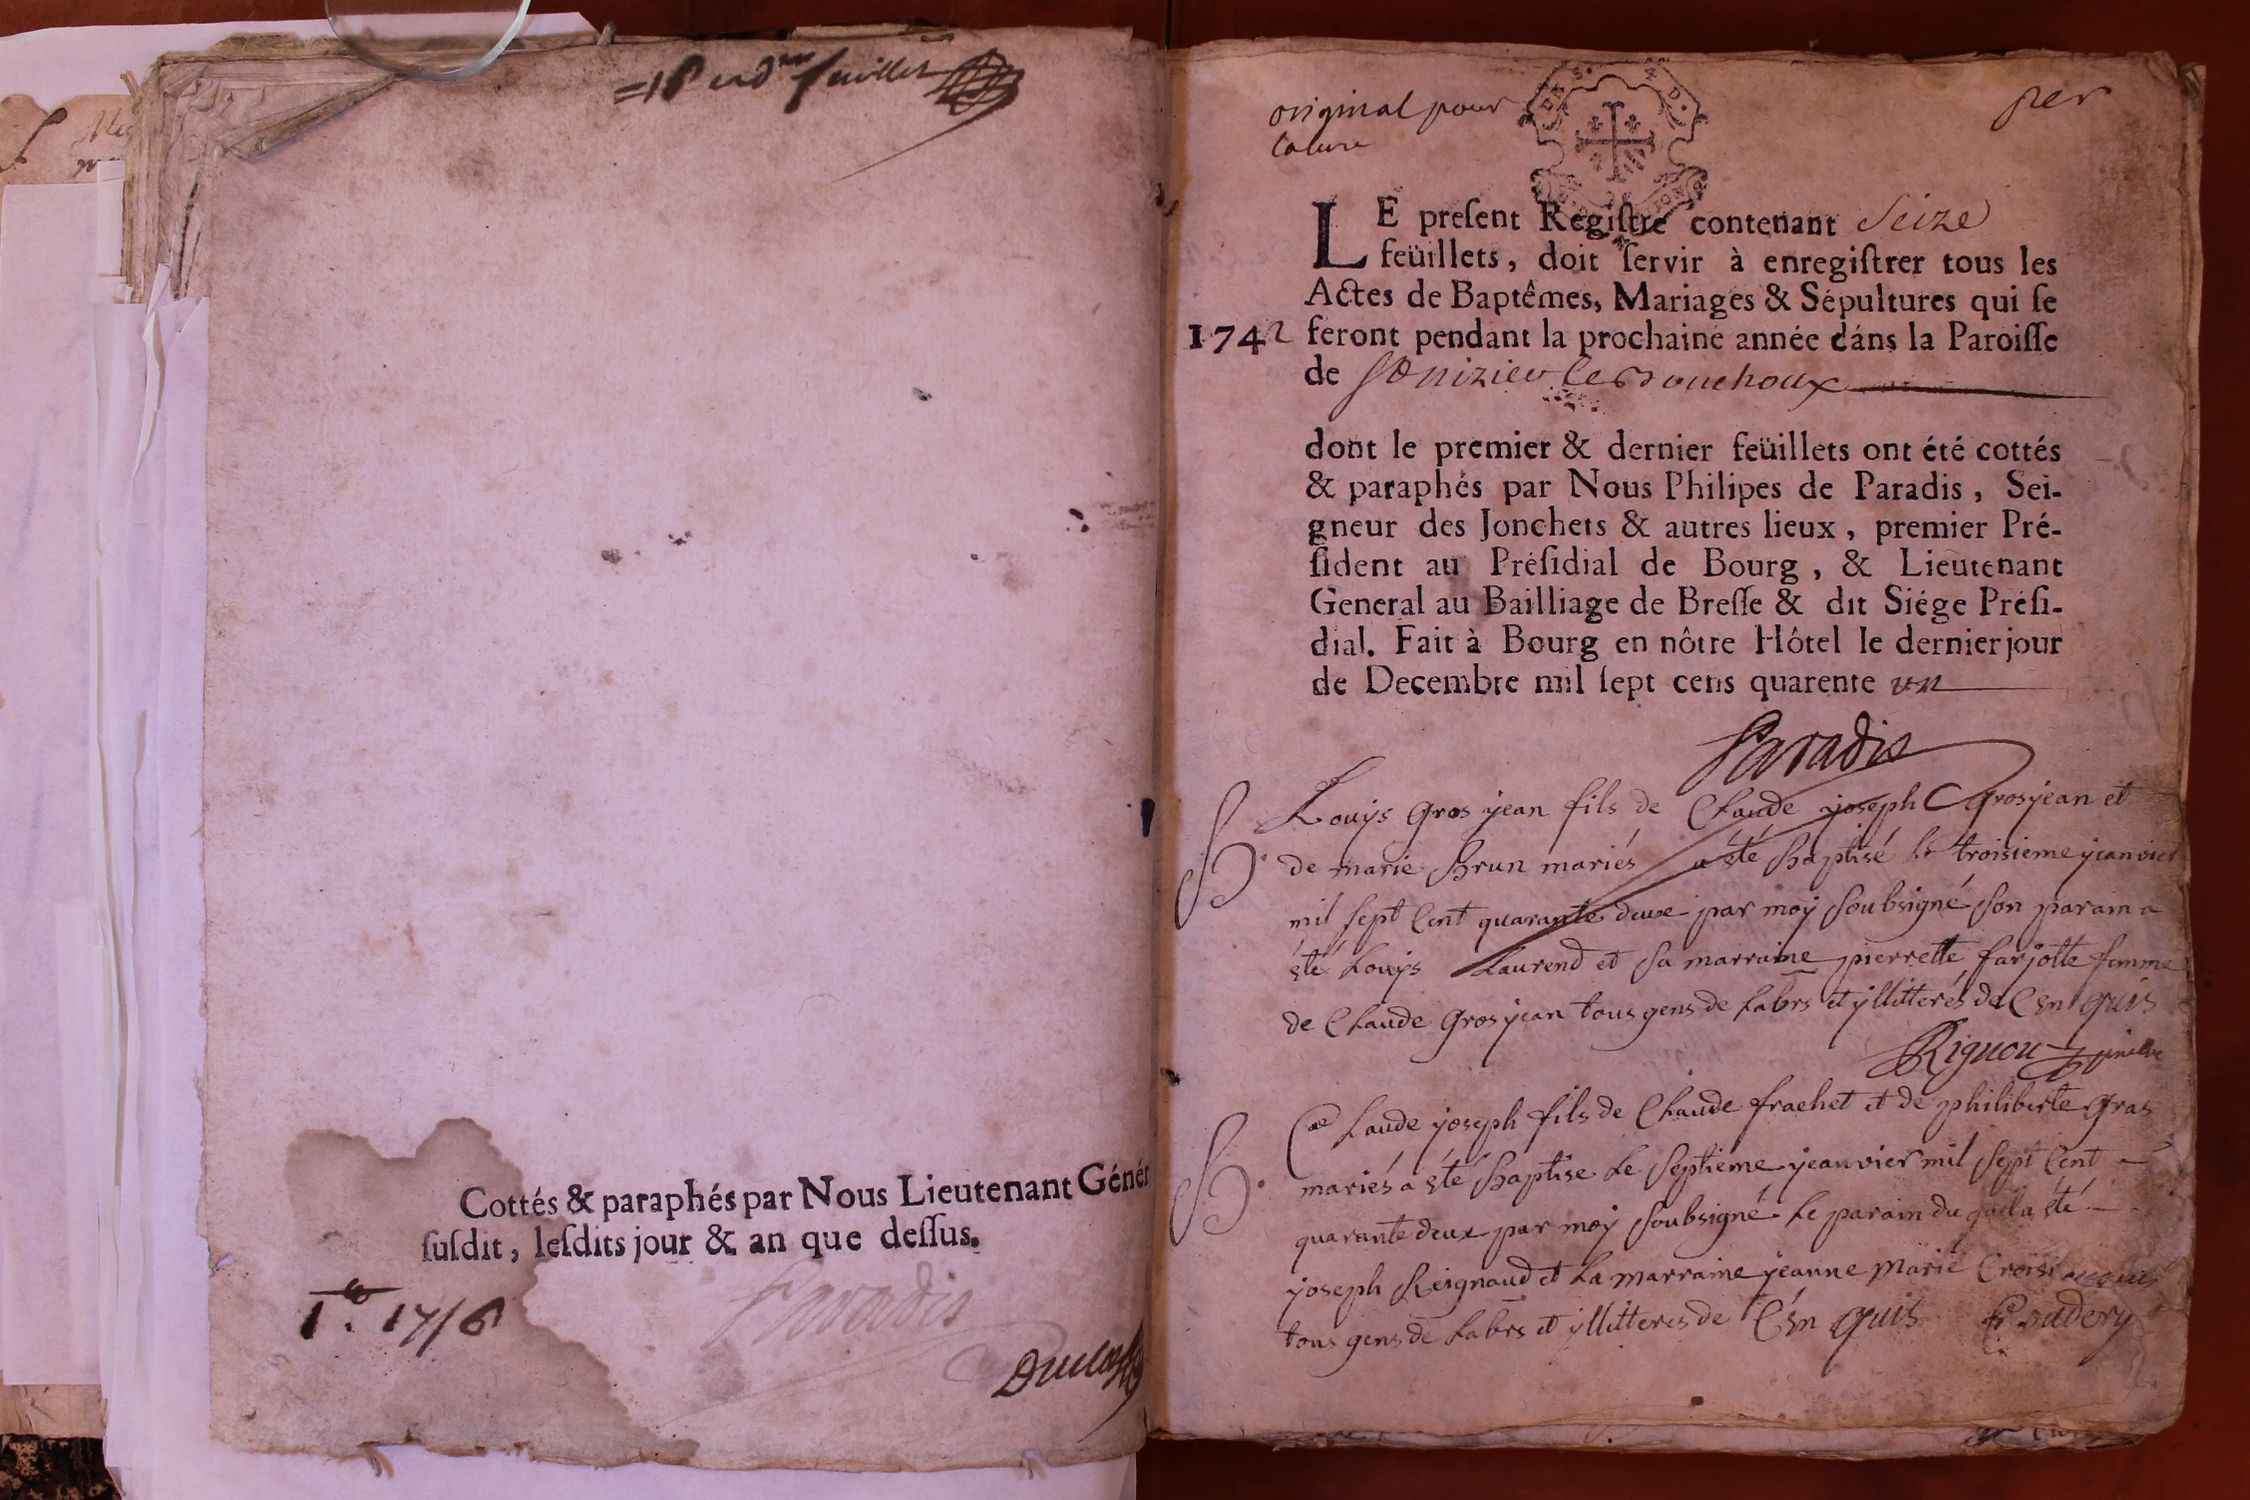 =18 et d.er feuillet
Cottés & paraphés par Nous Lieutenant Génér
susdit, lesdits jour & an que dessus.
Paradis
original pour
la cure
per
LE present Registre contenant Seize
feüillets, doit servir à enregistrer tous les
Actes de Baptêmes, Mariages & Sépultures qui se
1742 feront pendant la prochaine année dáns la Paroisse
de St nizier le Bouchoux
dont le premier & dernier feüillets ont été cottés
& paraphés par Nous Philipes de Paradis, Sei-
gneur des Jonchets & autres lieux, premier Pré-
sident au Présidial de Bourg, & Lieutenant
General au Bailliage de Bresse & dit Siége Prési-
dial. Fait à Bourg en nôtre Hôtel le dernier jour
de Decembre mil sept cens quarente un
Paradis
B. Louijs Gros jean fils de Claude joseph Grosjean et
de marie Brun mariés a été baptisé le troisieme jeanvier
mil sept Cent quarante deux par moy soubsigné son parain a
été Louijs Laurend et sa marraine pierrette farjotte femme
de Claude Grosjean tous gens de Labrs et yllitterés de Ce enquis
B. Claude joseph fils de Claude frachet et de philiberte Gras
mariés a été baptisé le septieme jeanvier mil sept Cent
quarante deux par moy soubsigné le parain du quel a été
joseph Reignaud et la marraine jeanne marie
tous gens de Labrs et yllitteres de Ce enquis